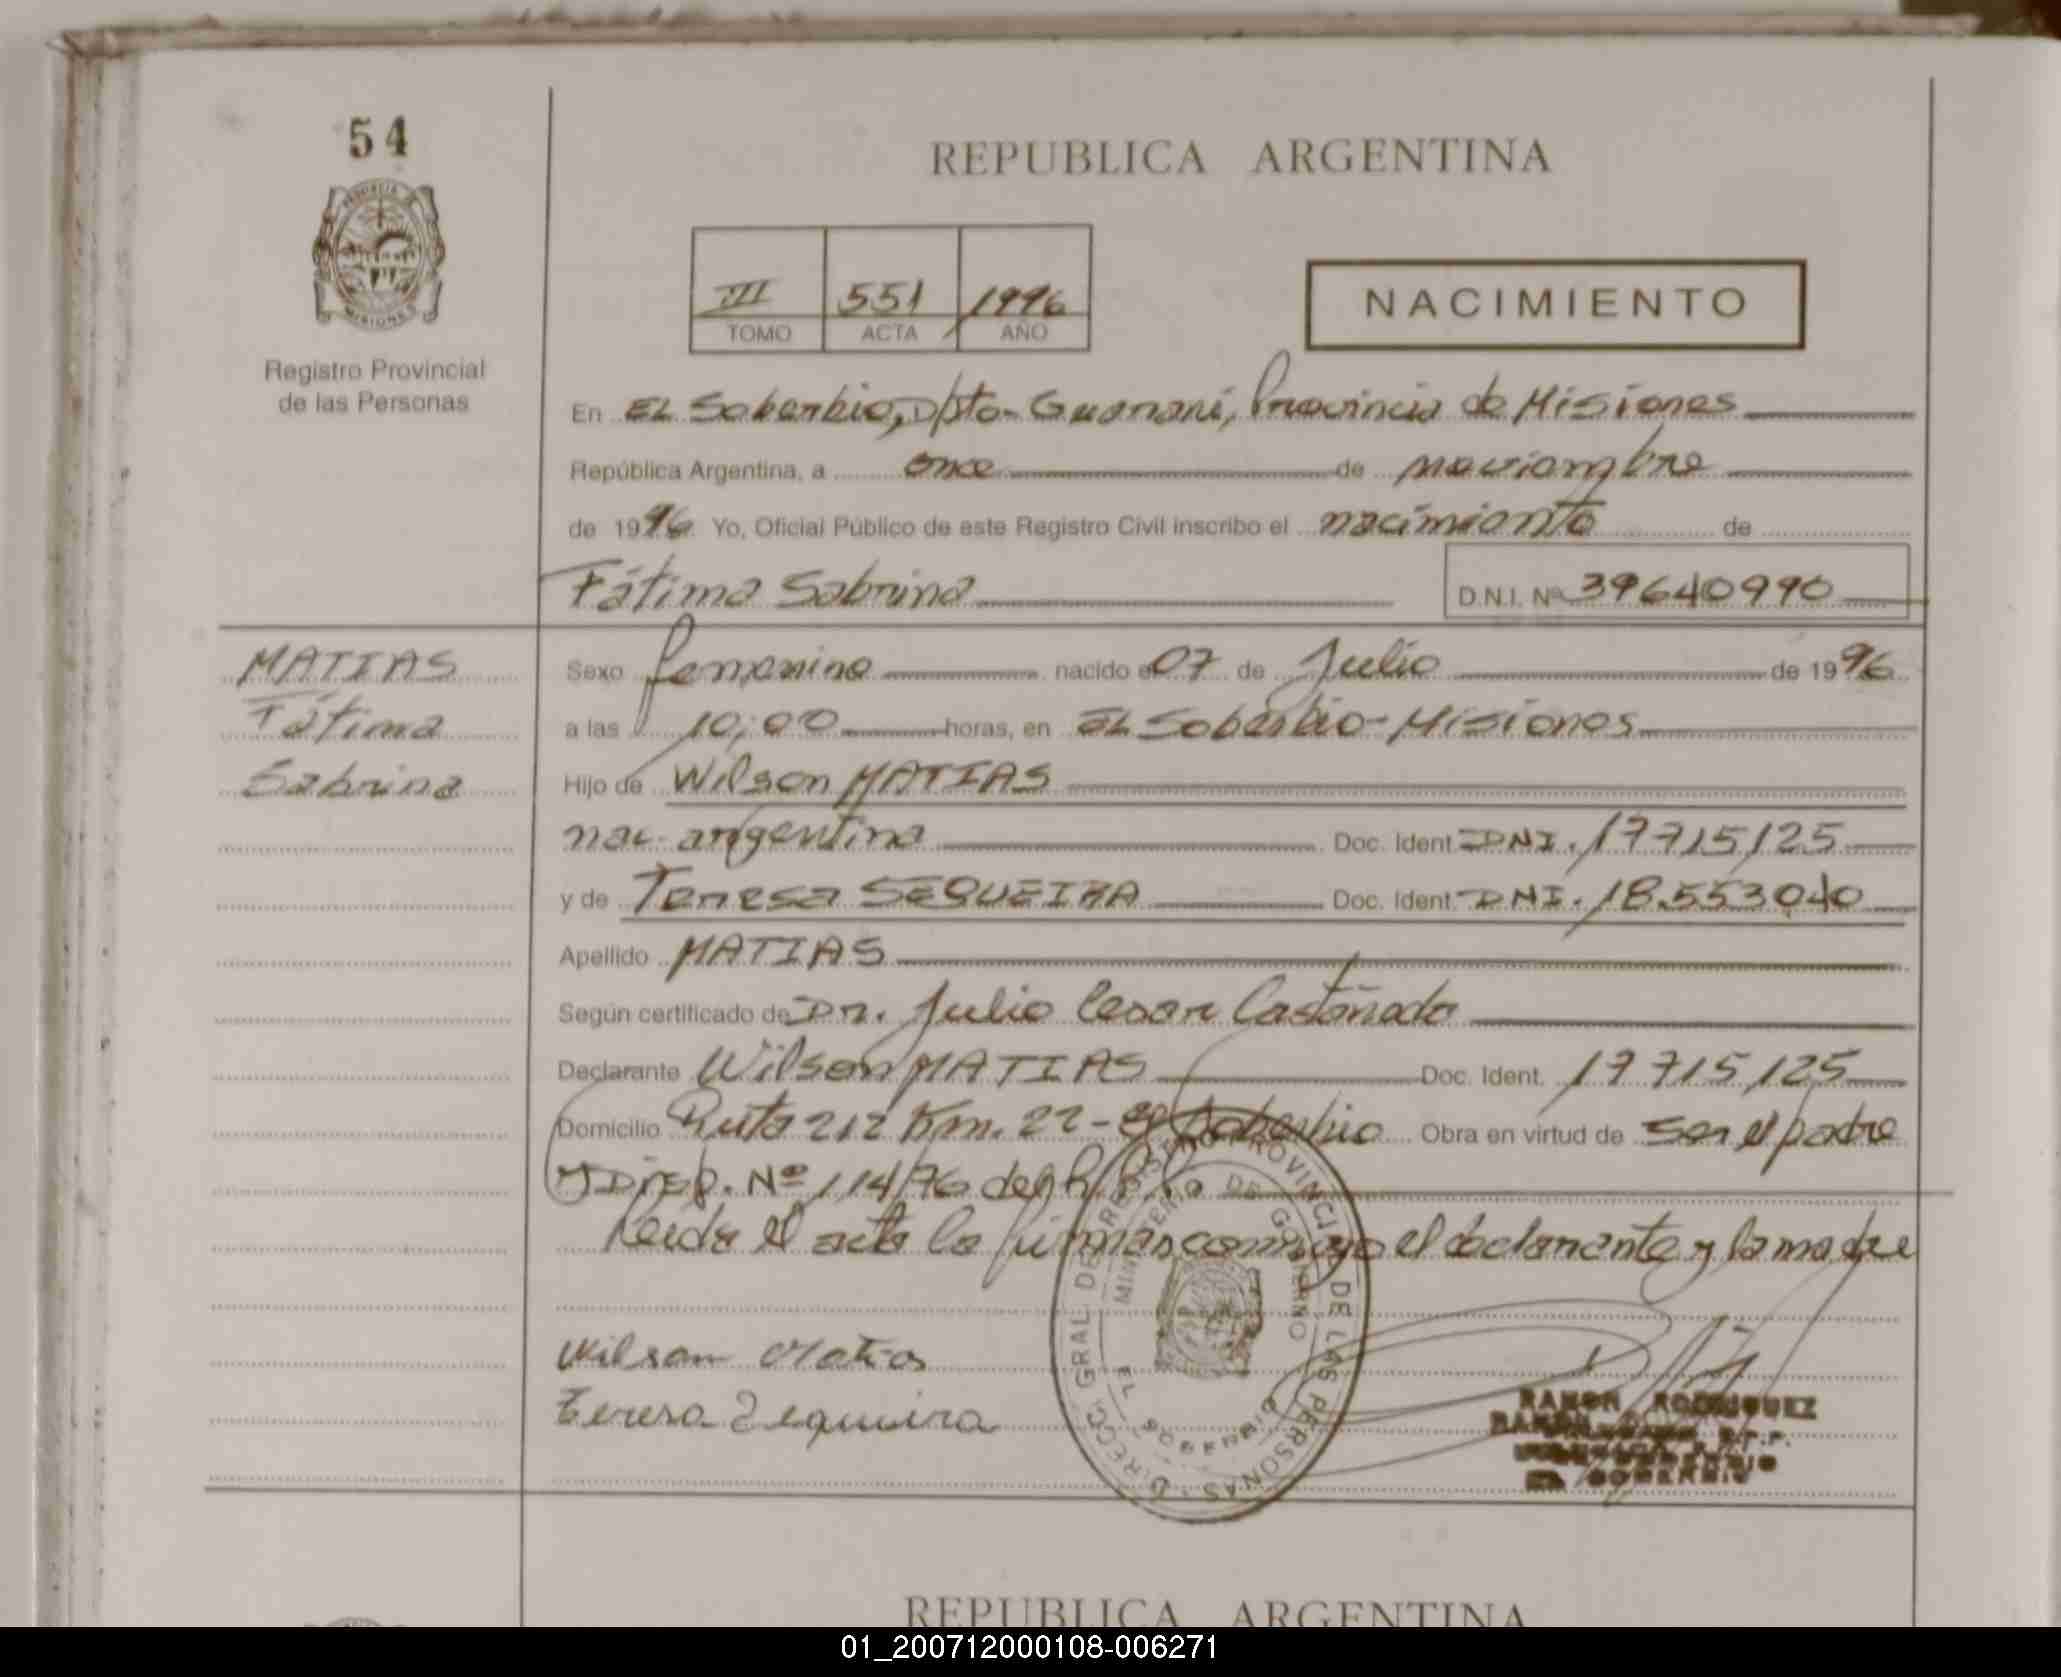 54
REPUBLICA ARGENTINA
PROVINCIA DE MISIONES
III 551 1996
TOMO ACTA AÑO
NACIMIENTO
Registro Provincial
de las Personas
En EL Soberbio, Dpto- Guaraní, Provincia de Misiones
República Argentina, a once de noviembre
de 1996 Yo, Oficial Público de este Registro Civil inscribo el nacimiento de
Fátima Sabrina D.N.I. Nº 39640990
MATIAS
Fátima
Sabrina
Sexo femenino nacido el 07 de Julio de 1996
a las 10,00 horas, en EL Soberbio- Misiones
Hijo de Wilson MATIAS
nac. argentina Doc. Ident. DNI. 17715125
y de Teresa SEQUEIRA Doc. Ident. DNI. 18.553040
Apellido MATIAS
Según certificado de Dr. Julio Cesar Castañada
Declarante Wilson MATIAS Doc. Ident. 17715,125
Domicilio Ruta 212 Km. 22- El Soberbio Obra en virtud de ser el padre
y Disp. Nº 114/76
Leida el acta la firman conmigo el declarante y la madre
Wilson Matias
Teresa Sequeira
DIRECC. GRAL. DE REGISTRO PROVINCIAL DE LAS PERSONAS
MINISTERIO DE GOBIERNO
EL SOBERBIO
RAMON RODRIGUEZ
EL SOBERBIO
REPUBLICA ARGENTINA
01_200712000108-006271